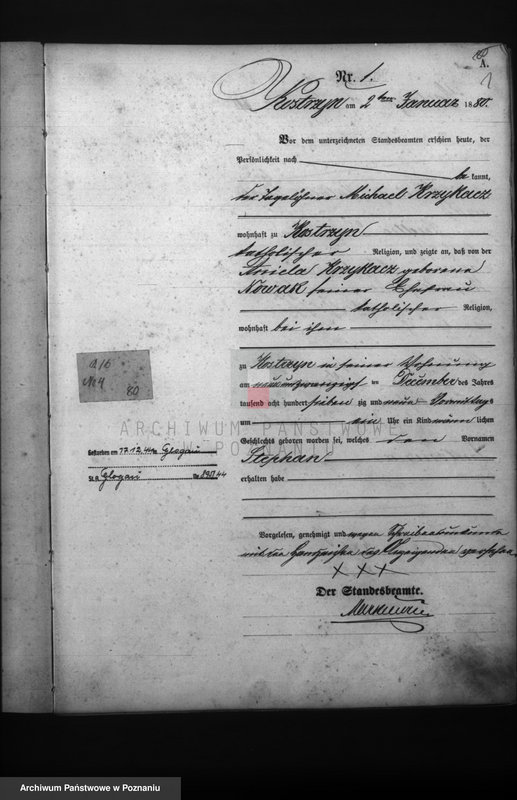 A.
1
Nr. 1.
Kostrzyn am 2ten Januar 1880.
Vor dem unterzeichneten Standesbeamten erschien heute, der
Persönlichkeit nach
be kannt,
der Tagelöhner Michael Krzykacz
wohnhaft zu Kostrzyn
katholischer Religion, und zeigte an, daß von der
Aniela Krzykacz geborene
Nowak seiner Ehefrau
katholischer Religion,
wohnhaft bei ihm
zu Kostrzyn in seiner Wohnung
am neunundzwanzigsten December des Jahres
tausend acht hundert sieben zig und neun Vormittags
um ein Uhr ein Kind männlichen
Geschlechts geboren worden sei, welches den Vornamen
Stephan
erhalten habe
Vorgelesen, genehmigt und wegen Schreibensunkunde
mit den Handzeichen des Anzeigenden versehen.
XXX
Der Standesbeamte.
A 16
No 4
80
Gestorben am 17.12.44 in Glogau
St. A. Glogau No 890/44
ARCHIWUM PAŃSTWOWE
W POZNANIU
Archiwum Państwowe w Poznaniu